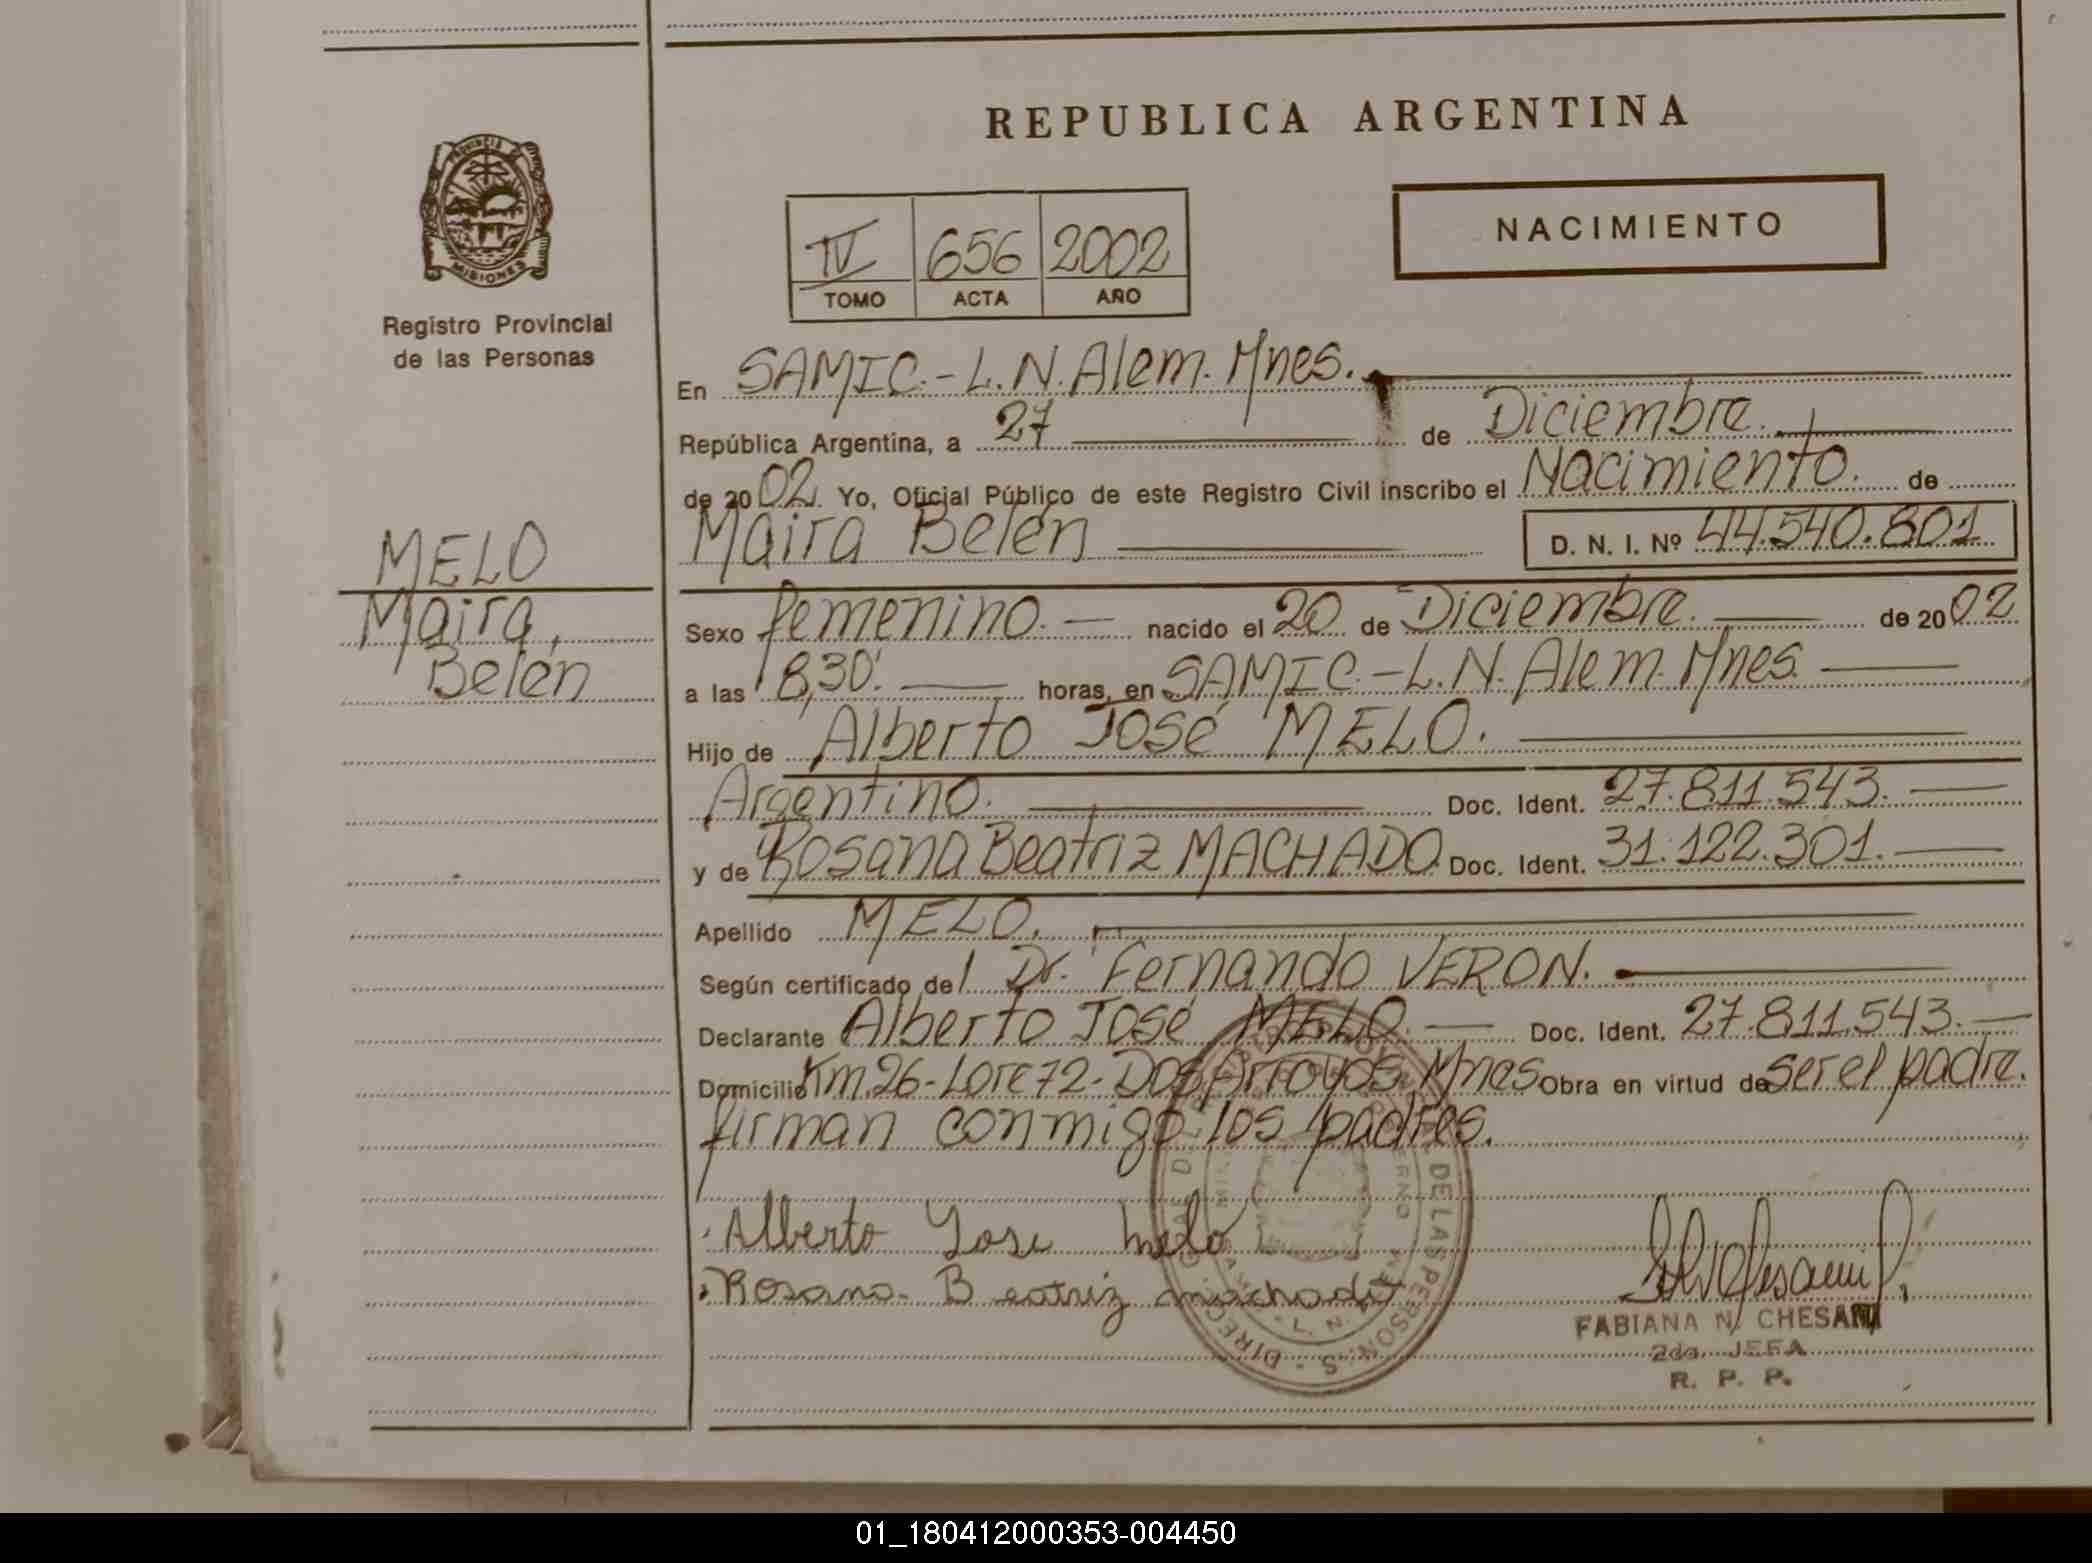 REPUBLICA ARGENTINA
PROVINCIA DE
MISIONES
Registro Provincial
de las Personas
IV 656 2002
TOMO ACTA AÑO
NACIMIENTO
En SAMIC.-L.N.Alem. Mnes.
República Argentina, a 27 de Diciembre.
de 2002. Yo, Oficial Público de este Registro Civil inscribo el Nacimiento. de
Maira Belén D. N. I. Nº 44.540.801
MELO
Maira,
Belén
Sexo femenino. nacido el 20 de Diciembre. de 2002
a las 8,30'. horas, en SAMIC.-L.N. Alem. Mnes.
Hijo de Alberto José MELO.
Argentino. Doc. Ident. 27.811.543.
y de Rosana Beatriz MACHADO. Doc. Ident. 31.122.301.
Apellido MELO.
Según certificado del Dr. Fernando VERON.
Declarante Alberto José MELO. Doc. Ident. 27.811.543.
Domicilio Km.26-Lote 72-Dos Arroyos Mnes Obra en virtud de ser el padre.
firman conmigo los padres.
Alberto Jose melo
Rosana Beatriz machado
DE LAS PERSONAS
L. N.
FABIANA N. CHESANI
2da. JEFA
R. P. P.
01_180412000353-004450